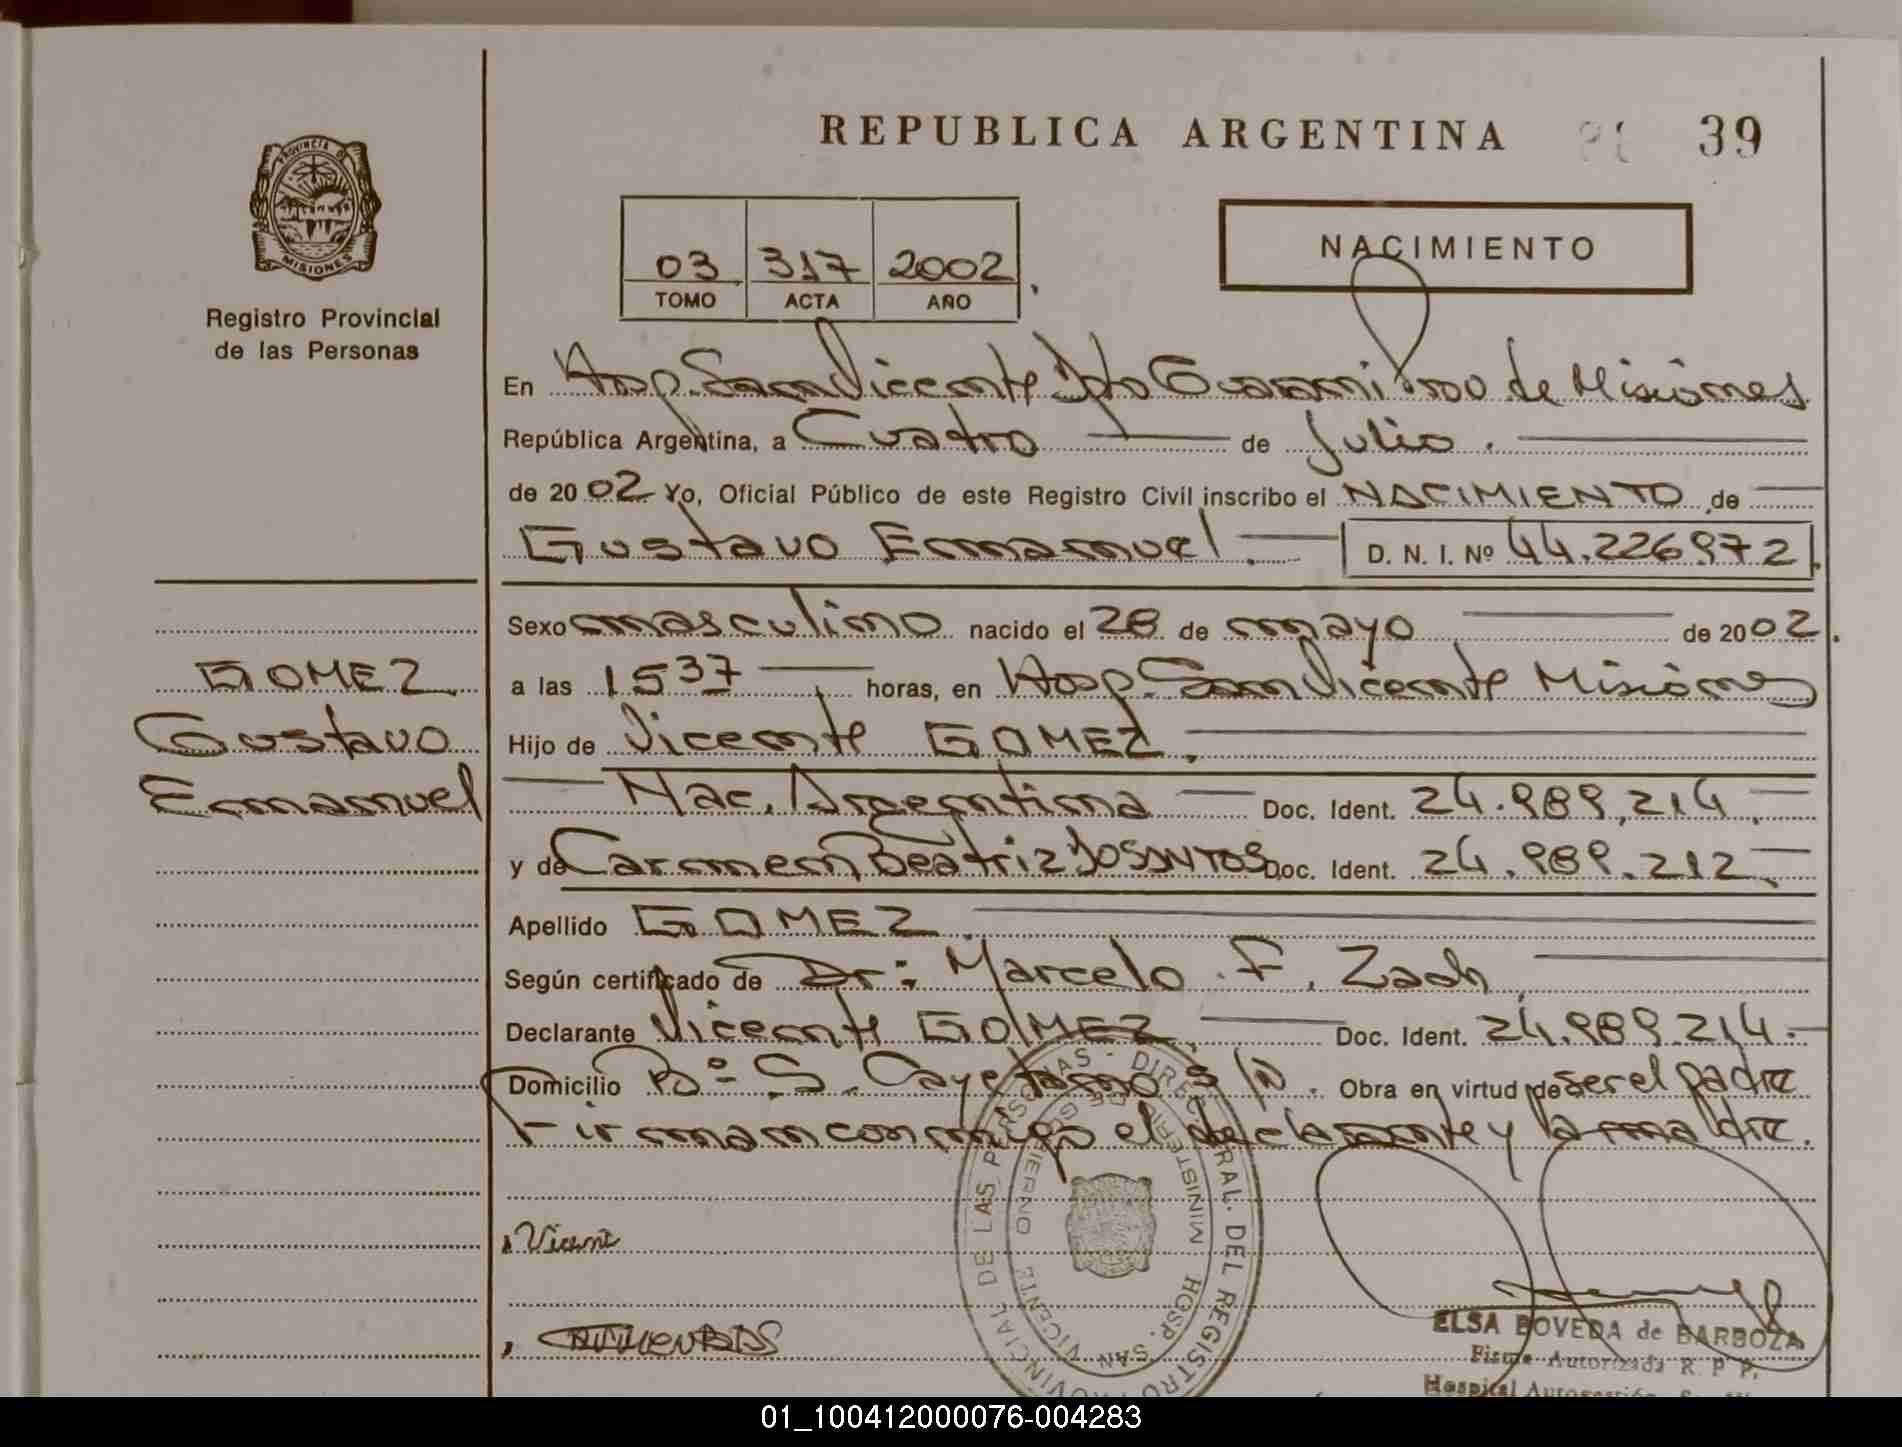 REPUBLICA ARGENTINA
39
PROVINCIA DE
MISIONES
Registro Provincial
de las Personas
03 317 2002
TOMO ACTA AÑO
NACIMIENTO
En Hosp. San Vicente Dpto Guarani Prov de Misiones
República Argentina, a Cuatro de Julio.
de 2002 Yo, Oficial Público de este Registro Civil inscribo el NACIMIENTO de
Gustavo Emmanuel. D. N. I. Nº 44.226972
Sexo masculino nacido el 28 de mayo de 2002.
a las 15 37 horas, en Hosp. San Vicente Misiones
Hijo de Vicente GOMEZ.
Nac. Argentina Doc. Ident. 24.989.214.
y de Carmen Beatriz DOSANTOS Doc. Ident. 24.989.212.
Apellido GOMEZ.
Según certificado de Dr: Marcelo F. Zach
Declarante Vicente GOMEZ. Doc. Ident. 24.989.214.
Domicilio Bº S. Cayetano s/n. Obra en virtud de ser el padre
Firman conmigo el declarante y la madre.
GOMEZ
Gustavo
Emmanuel
Vicente
DIRECCION GENERAL DEL REGISTRO PROVINCIAL DE LAS PERSONAS
MINISTERIO DE GOBIERNO
HOSP. SAN VICENTE
ELSA BOVEDA de BARBOZA
Firma Autorizada R. P. P.
Hospital Autogestión
01_100412000076-004283